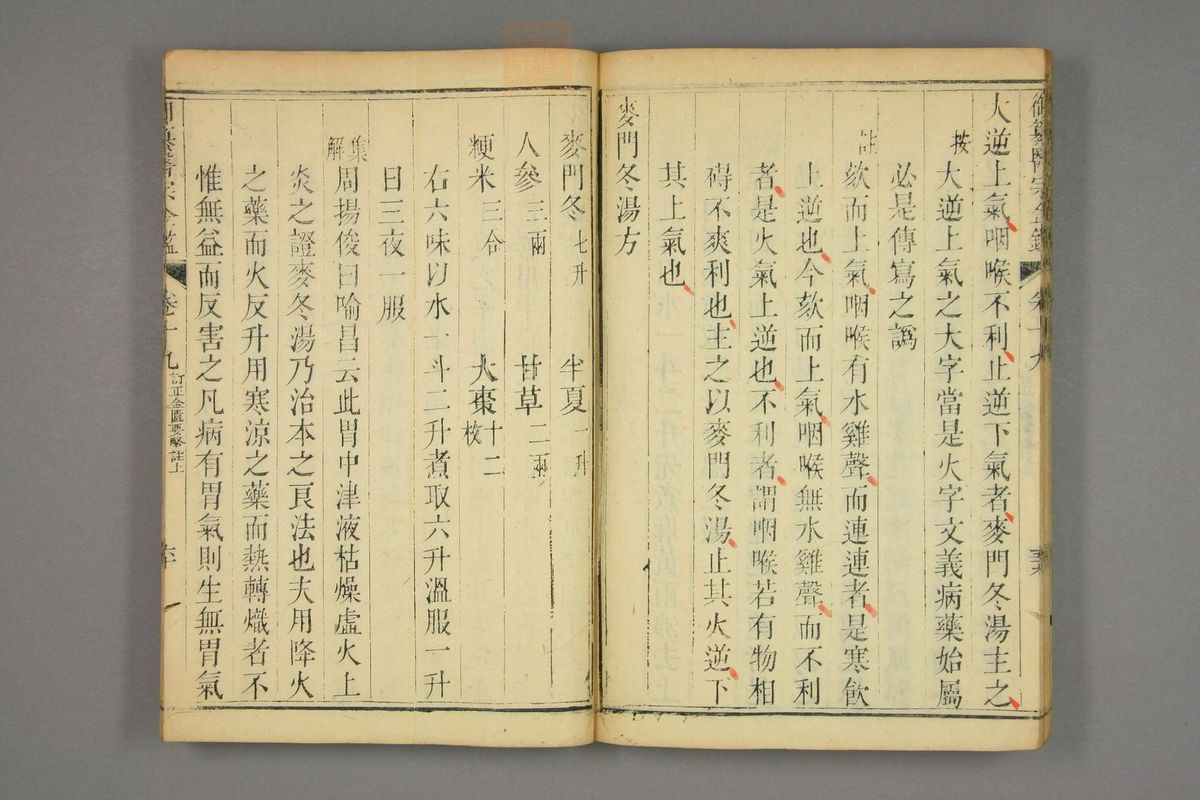 大逆上氣咽喉不利止逆下氣者麥門冬湯主之
按
大逆上氣之大字當是火字文義病藥始屬
必是傳寫之譌
註
欬而上氣咽喉有水雞聲而連連者是寒飲
上逆也今欬而上氣咽喉無水雞聲而不利
者是火氣上逆也不利者謂咽喉若有物相
碍不爽利也主之以麥門冬湯止其火逆下
其上氣也
麥門冬湯方
麥門冬七升 半夏一升
人參三兩 甘草二兩
粳米三合 大棗十二枚
右六味以水一斗二升煮取六升溫服一升
日三夜一服
集解
周揚俊曰喻昌云此胃中津液枯燥虛火上
炎之證麥冬湯乃治本之良法也夫用降火
之藥而火反升用寒涼之藥而熱轉熾者不
惟無益而反害之凡病有胃氣則生無胃氣
卷十九 訂正金匱要略註上